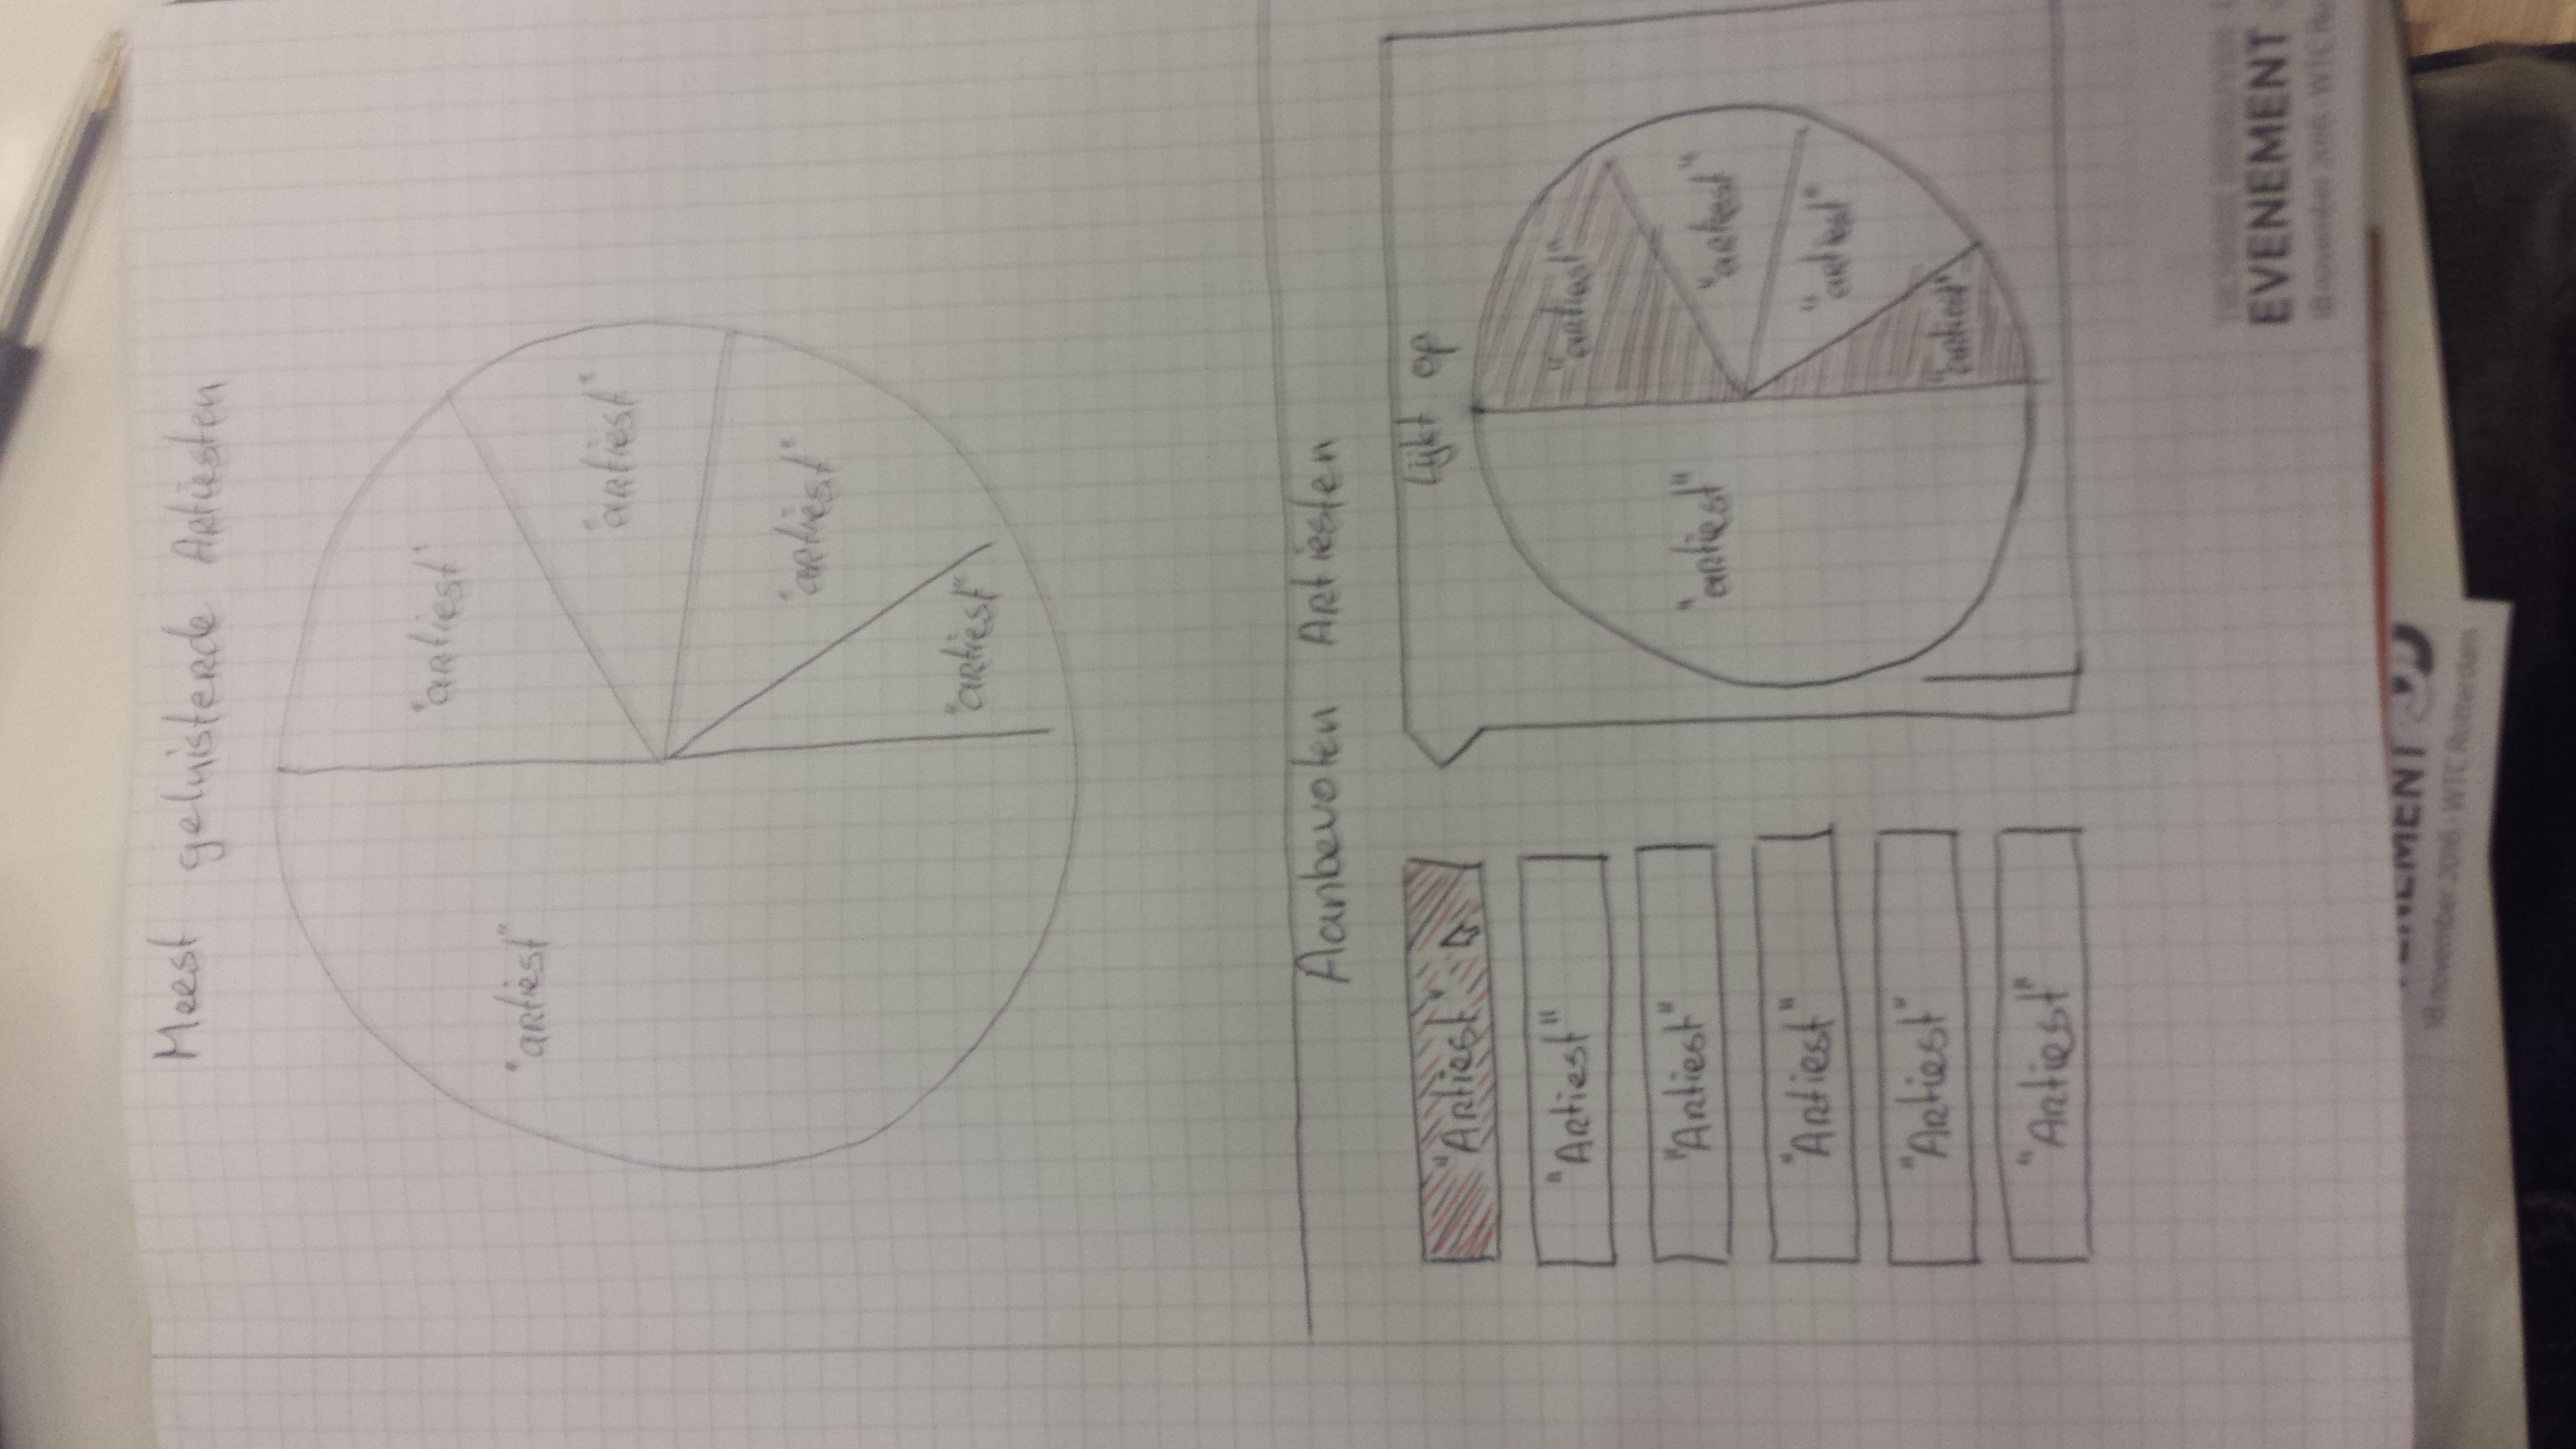 Meest geluisterde Artiesten
"artiest"
"artiest"
"artiest"
"artiest"
"artiest"
Aanbevolen Artiesten
"Artiest"
"Artiest"
"Artiest"
"Artiest"
"Artiest"
"Artiest"
Lijkt op
"artiest"
"artiest"
"artiest"
"artiest"
"artiest"
EVENEMENT
18 november 2016 - WTC
EVENEMENT
18 november 2016 - WTC Rotterdam